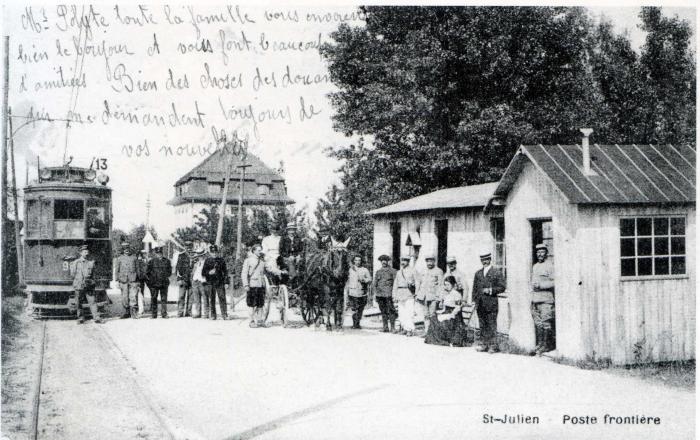 Mr Polyte toute la famille vous envoient
bien le bonjour et vous font beaucoup
d'amitiées Bien des choses des douan
qui me demandent toujours de
vos nouvelles
13
St-Julien - Poste frontière